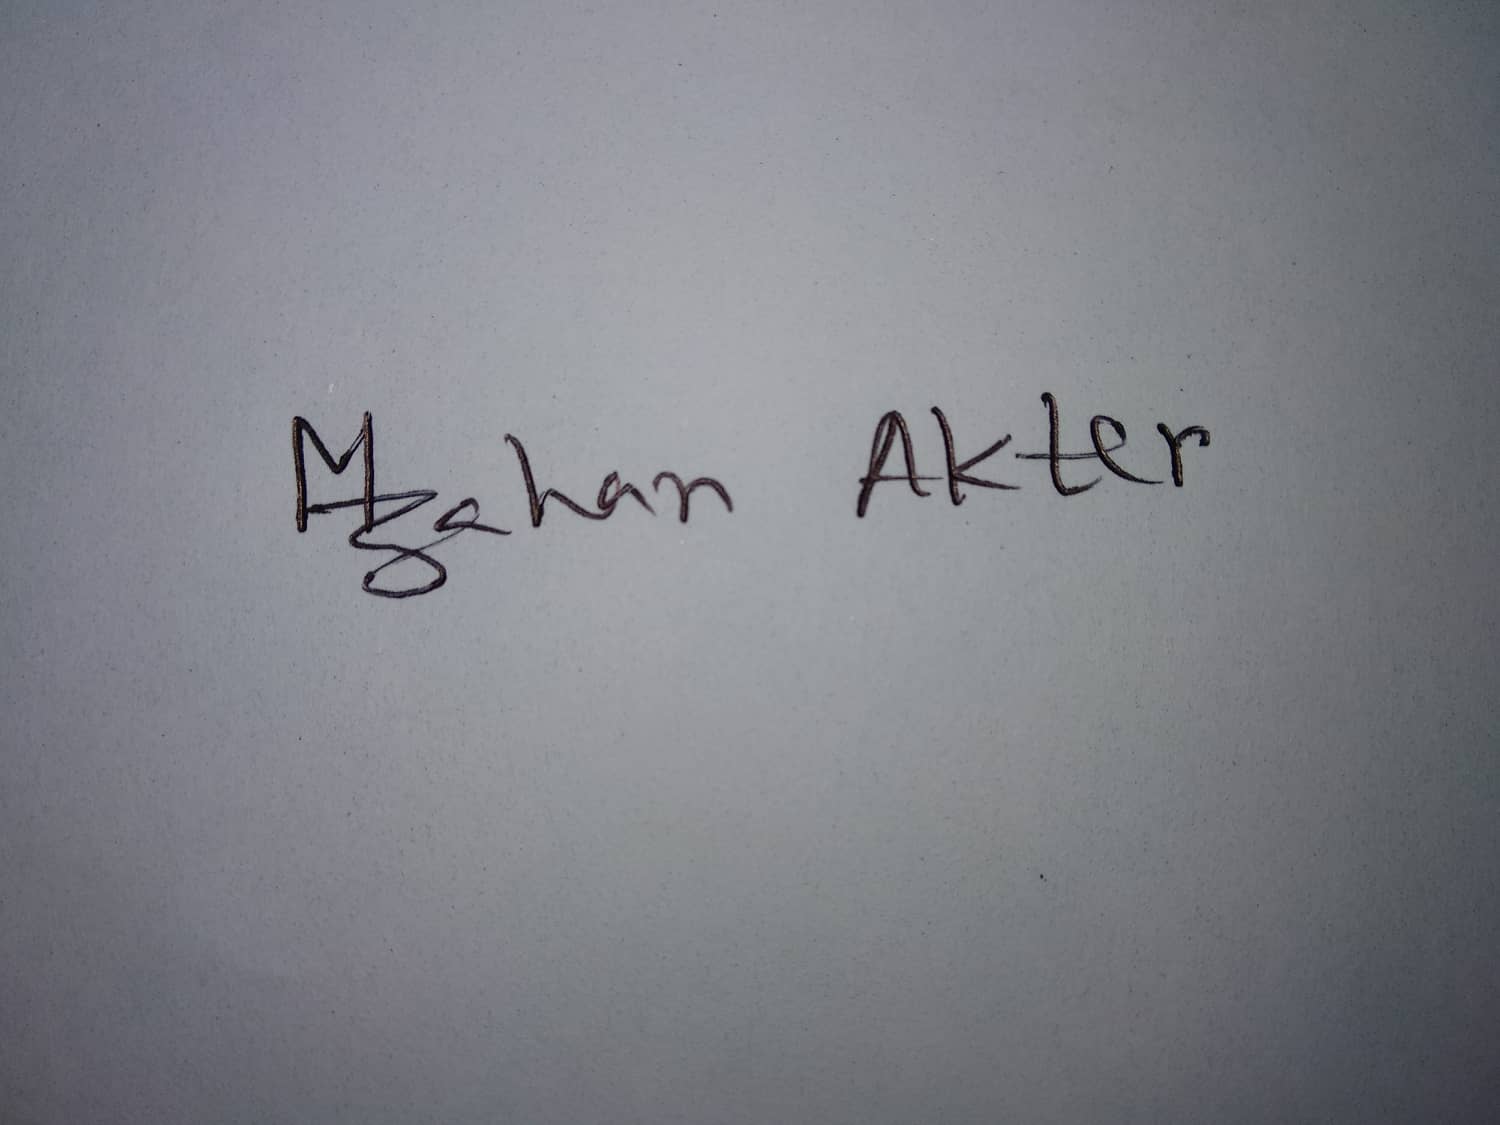 Mzahan Akter